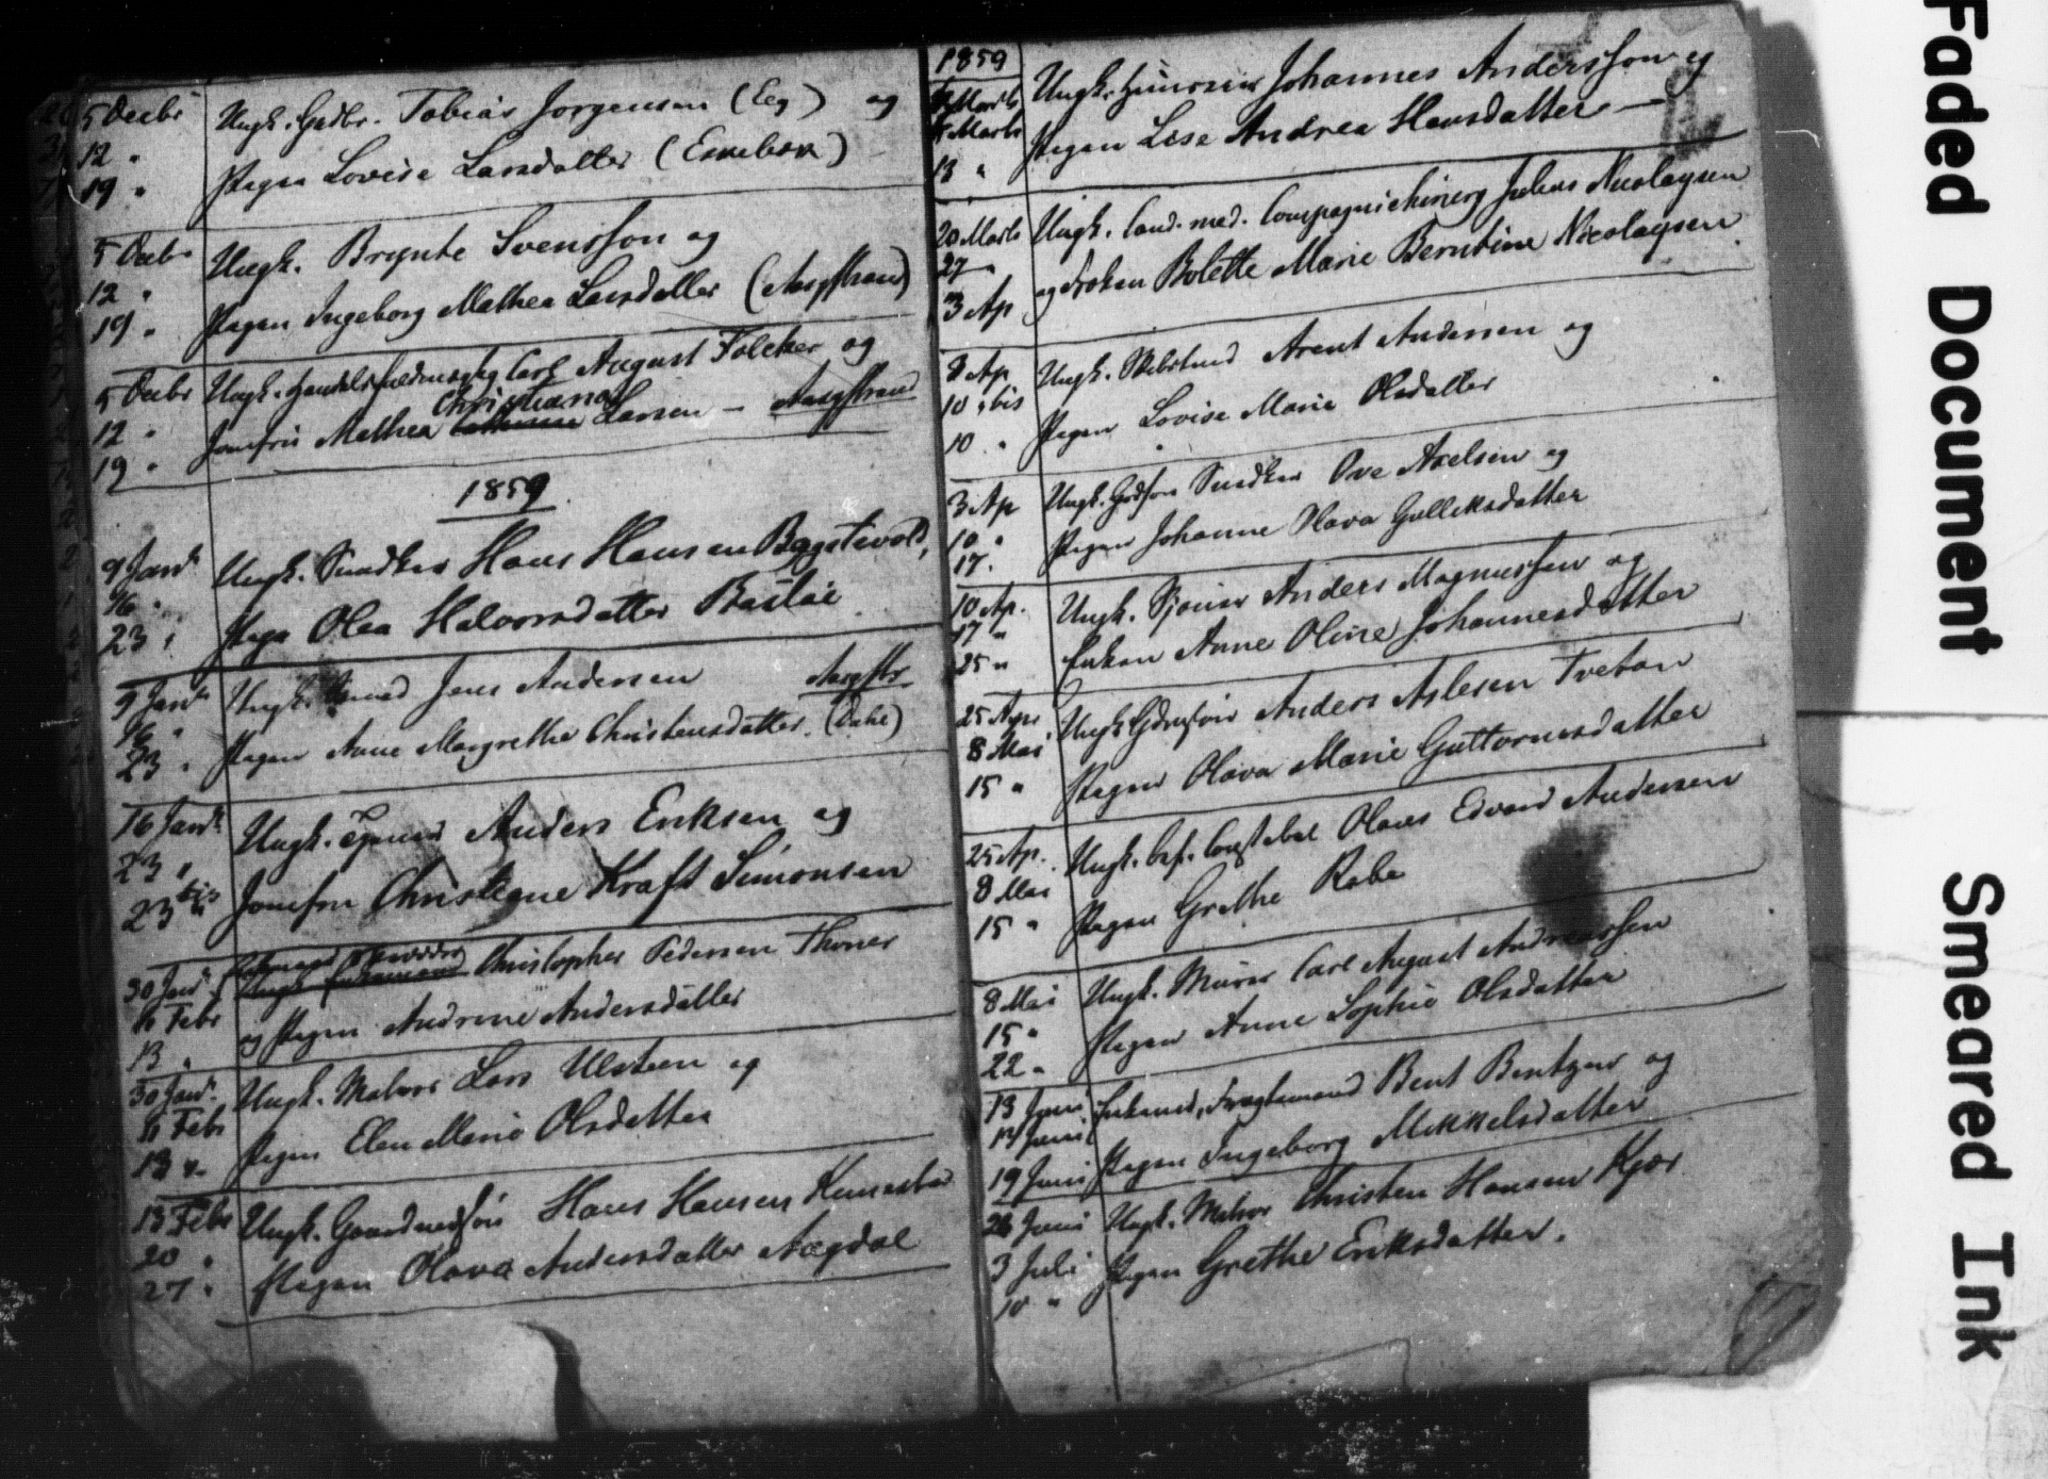 5 Decbr Ungk. Gdbr. Tobias Jørgensen (Eeg) og
12 "
19 " Pigen Lovise Larsdatter (Eskebæk)
5 Decbr Ungk. Brynte Svensson og
12 "
19 " Pigen Ingeborg Mathea Larsdatter (Aasgstrand)
5 Decbr Ungk. Handelsfuldmægtig Carl August Folcker og
Christiana
12 " Jomfru Mathea Larsen – Aasgstrand
19 "
1859
9 Jan Ungk. Snedker Hans Hansen Bogstevold,
16 "
23 " Pige Olea Halvorsdatter Bastøe
9 Jan Ungk. Jens Andersen Aasgstr
16 "
23 " Pigen Anne Margrethe Christensdatter (Dahl)
16 Jan Ungk. Anders Eriksen og
23 "
23 bis Jomfru Christiane Kraft Simonsen
30 Jan Christopher Pedersen Thorier
6 Febr
13 " og Pigen Andrine Andersdatter
30 Jan Ungk. Matros Lars Ulsteen og
6 Febr
13 " Pigen Elen Marie Olsdatter
13 Febr Ungk. Gaardmedsøn Hans Hansen
20 "
27 " Pigen Olava Andersdatter Aagdal
1859
Ungk. Johannes Andersson og
6 Marts
13 " Pigen Lise Andrea Hansdatter –
20 Marts Ungk. Cand. med. Compagnichirurg Julius Nicolaysen
27 "
3 Ap og Frøken Bolette Marie Berntine Nicolaysen
3 Ap Ungk. Skibstmd Arent Andersen og
10 " bis
10 " Pigen Lovise Marie Olsdatter
3 Ap Ungk. Snedker Ove Axelsen og
10 "
17 " Pigen Johanne Olava Gulleksdatter
10 Ap. Ungk. Anders Magnussen og
17 "
25 " Enken Anne Oline Johannesdatter
25 Apr Ungk. Anders Aslesen Tvetan
8 Mai
15 " Pigen Olava Marie Guttormsdatter
25 Ap. Ungk. Constabel Olaves Edvard Andersen
8 Mai
15 " Pigen Grethe Rabe
8 Mai Ungk. Murer Carl August Andreassen
15 "
22 " Pigen Anne Sophie Olsdatter
13 Juni Enkemd, Fragtemand Bent Bentzen og
13 Juni
19 Juni Pigen Ingeborg Mikkelsdatter
26 Juni Ungk. Matros Christen Hansen Kjær
3 Juli
10 " Pigen Grethe Eriksdatter.
Faded Document
Smeared Ink